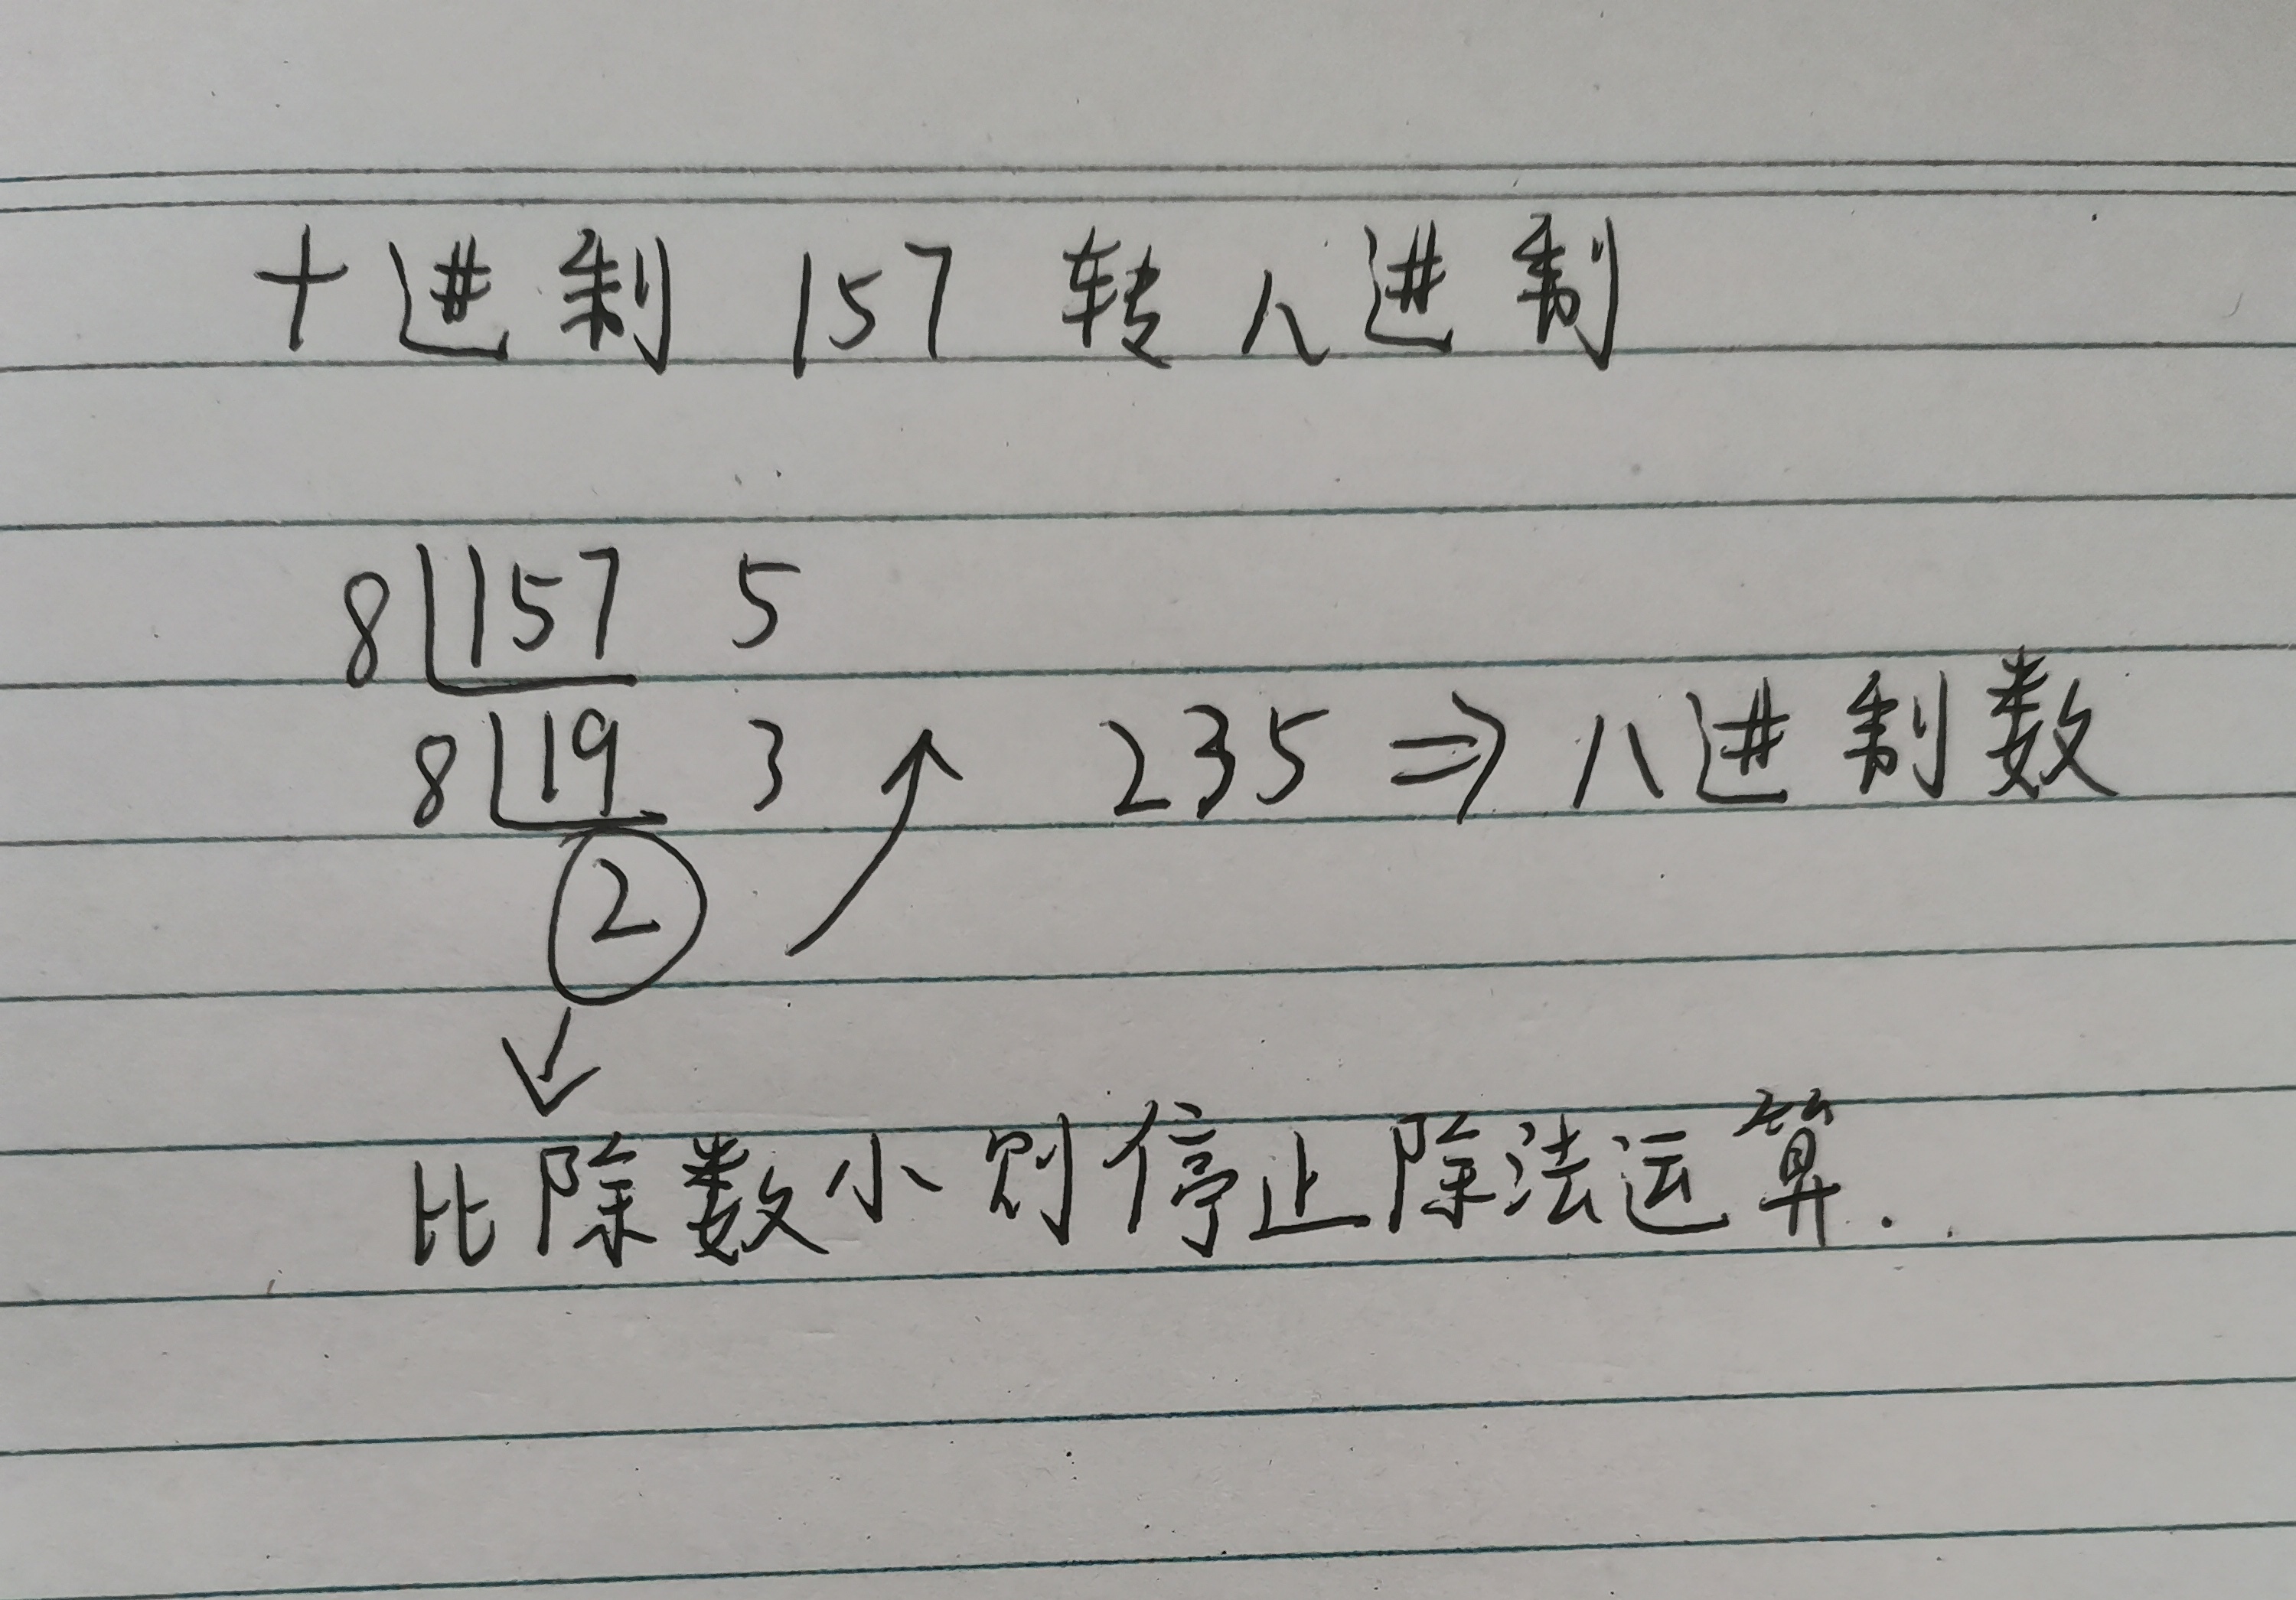 十进制 157 转八进制
8 157 5
8 19 3 235 ⇒ 八进制数
2
比除数小则停止除法运算.